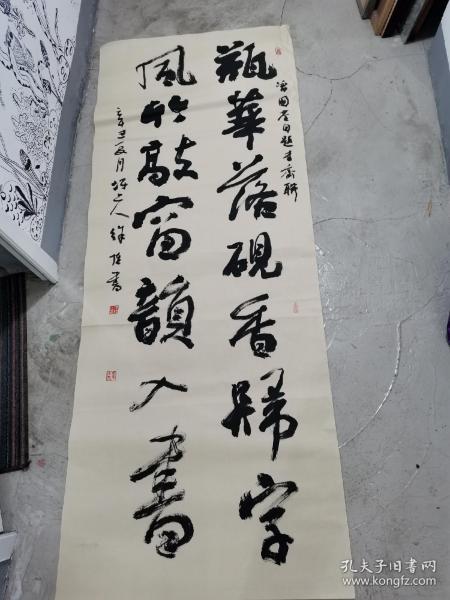 瓶華落硯香歸字
風竹敲窗韻入書
曾國藩自題書齋聯
辛丑夏月坪上人徐 書
孔夫子旧书网
www.kongfz.com